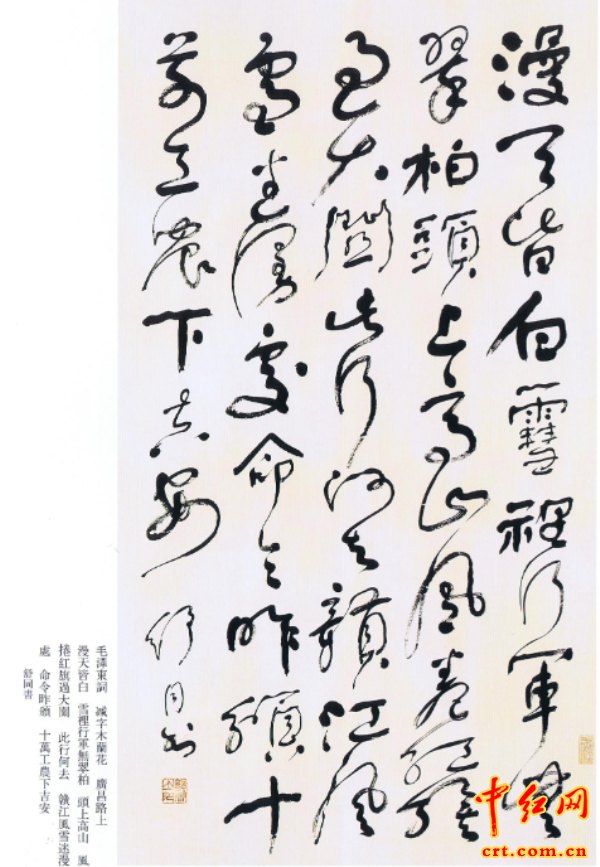 漫天皆白雪裡行軍無
翠柏頭上高山風卷紅旗
過大關此行何去贛江風
雪迷漫處命令昨頒十
萬工農下吉安 舒同書
毛澤東詞 減字木蘭花 廣昌路上
漫天皆白 雪裡行軍無翠柏 頭上高山 風
捲紅旗過大關 此行何去 贛江風雪迷漫
處 命令昨頒 十萬工農下吉安
舒同書
中红网
crt.com.cn